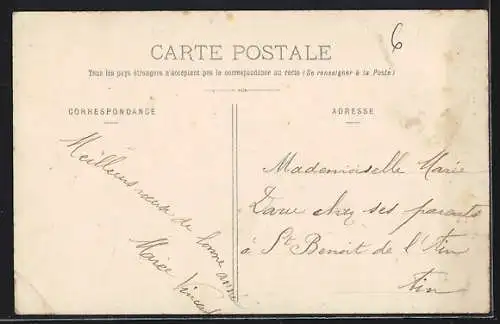 6
CARTE POSTALE
Tous les pays étrangers n'acceptent pas la correspondance au recto (Se renseigner à la Poste)
CORRESPONDANCE
ADRESSE
Meilleurs vœux de bonne année
Marie Vincent
Mademoiselle Marie
chez ses parents
à St Benoit de l'Ain
Ain